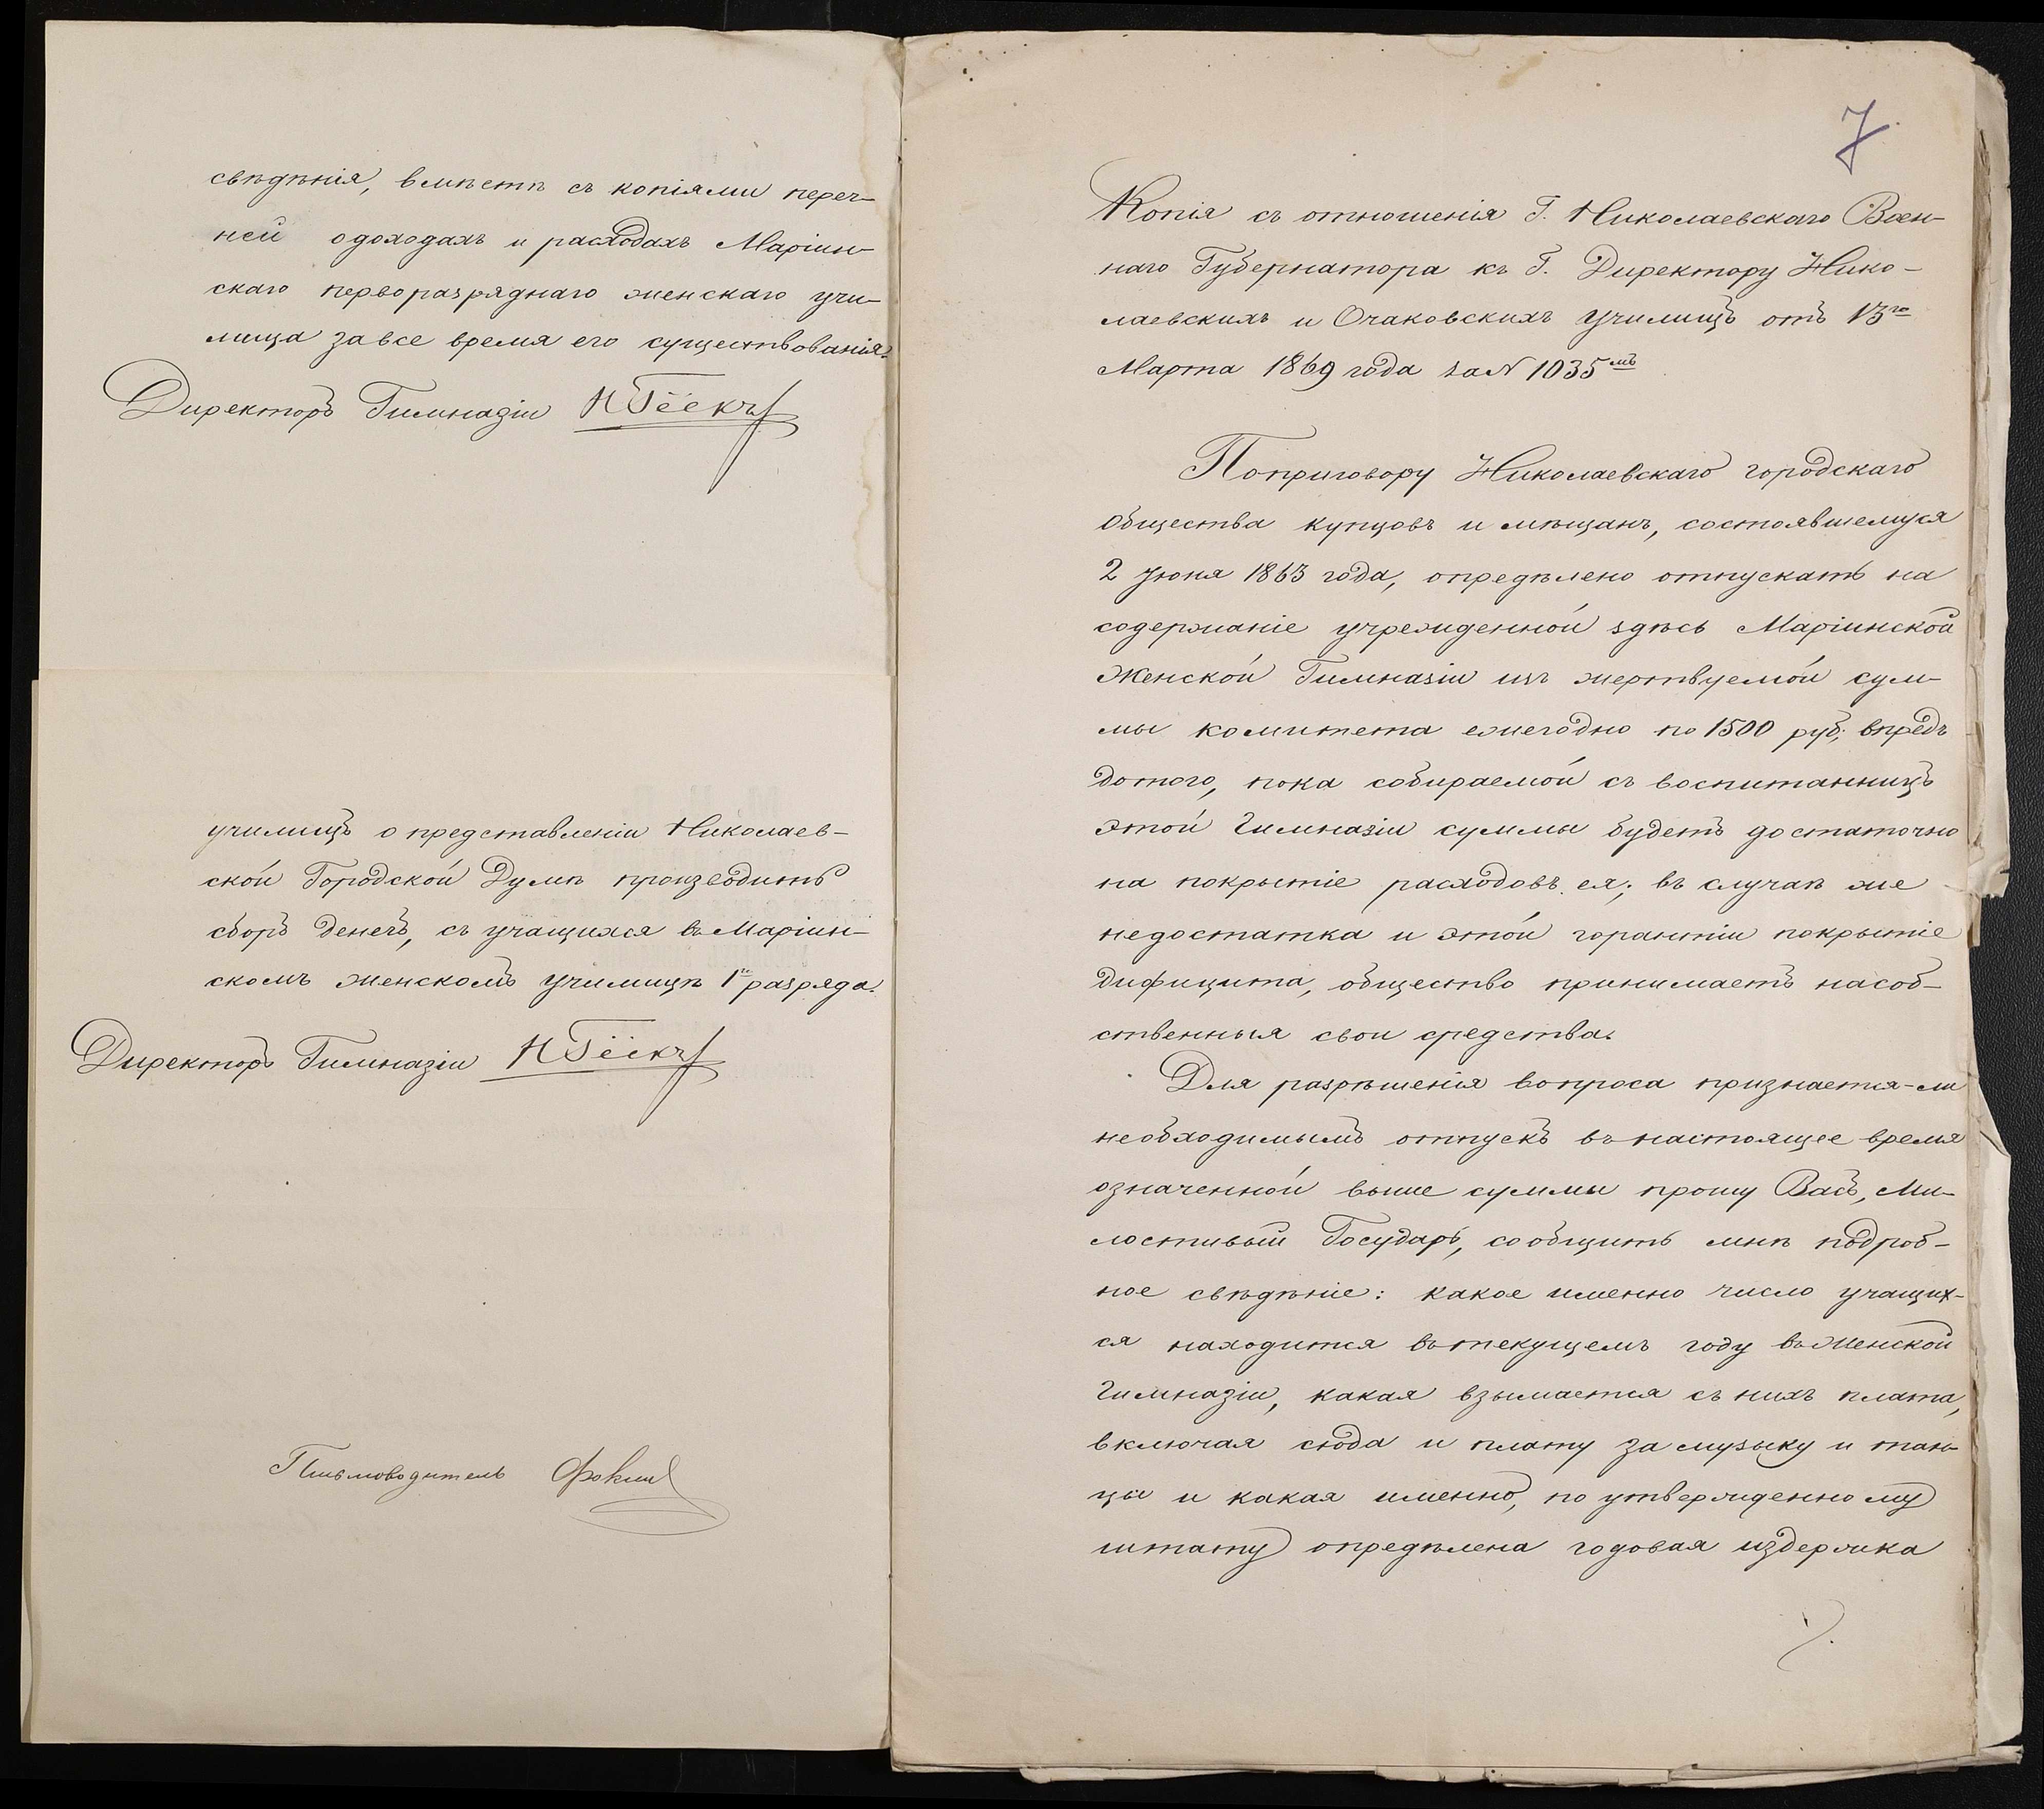 свѣдѣнія, вмѣстѣ съ копіями переч-
ней одоходахъ и расходахъ Маріин-
скаго перворазряднаго женскаго учи-
лища завсе время его существованія.
Директоръ Гимназіи Н Гёекъ
училищъ о представленіи Николаев-
ской Городской Думѣ производить
сборъ денегъ, съ учащихся въ Маріин-
скомъ женскомъ училищѣ 1го разряда.
Директоръ Гимназіи Н Гёекъ
Письмоводитель Фокин
7
Копія съ отношенія Г. Николаевскаго Воен-
наго Губернатора къ Г. Директору Нико-
лаевскихъ и Очаковскихъ Училищъ отъ 13го
Марта 1869 года за N 1035мъ
Поприговору Николаевскаго городскаго
общества купцовъ и мѣщанъ, состоявшемуся
2 Іюня 1863 года, опредѣлено отпускать на
содержаніе учрежденной здѣсь Маріинской
Женской Гимназіи изъ жертвуемой сум-
мы комитета ежегодно по 1500 руб; впредь
дотого, пока собираемой съ воспитанницъ
этой Гимназіи суммы будетъ достаточно
на покрытіе расходовъ ея; въ случаѣ же
недостатка и этой горантіи покрытіе
дифицита, общество принимаетъ насоб-
ственныя свои средства.
Для разрѣшенія вопроса признается-ли
необходимымъ отпускъ въ настоящее время
означенной выше суммы прошу Васъ, Ми-
лостивый Государь, сообщить мнѣ подроб-
ное свѣдѣніе: какое именно число учащих-
ся находится въ текущемъ году въ Женской
Гимназіи, какая взымается съ нихъ плата,
включая сюда и плату за музыку и тан-
цы и какая именно, по утвержденному
штату опредѣлена годовая издержка